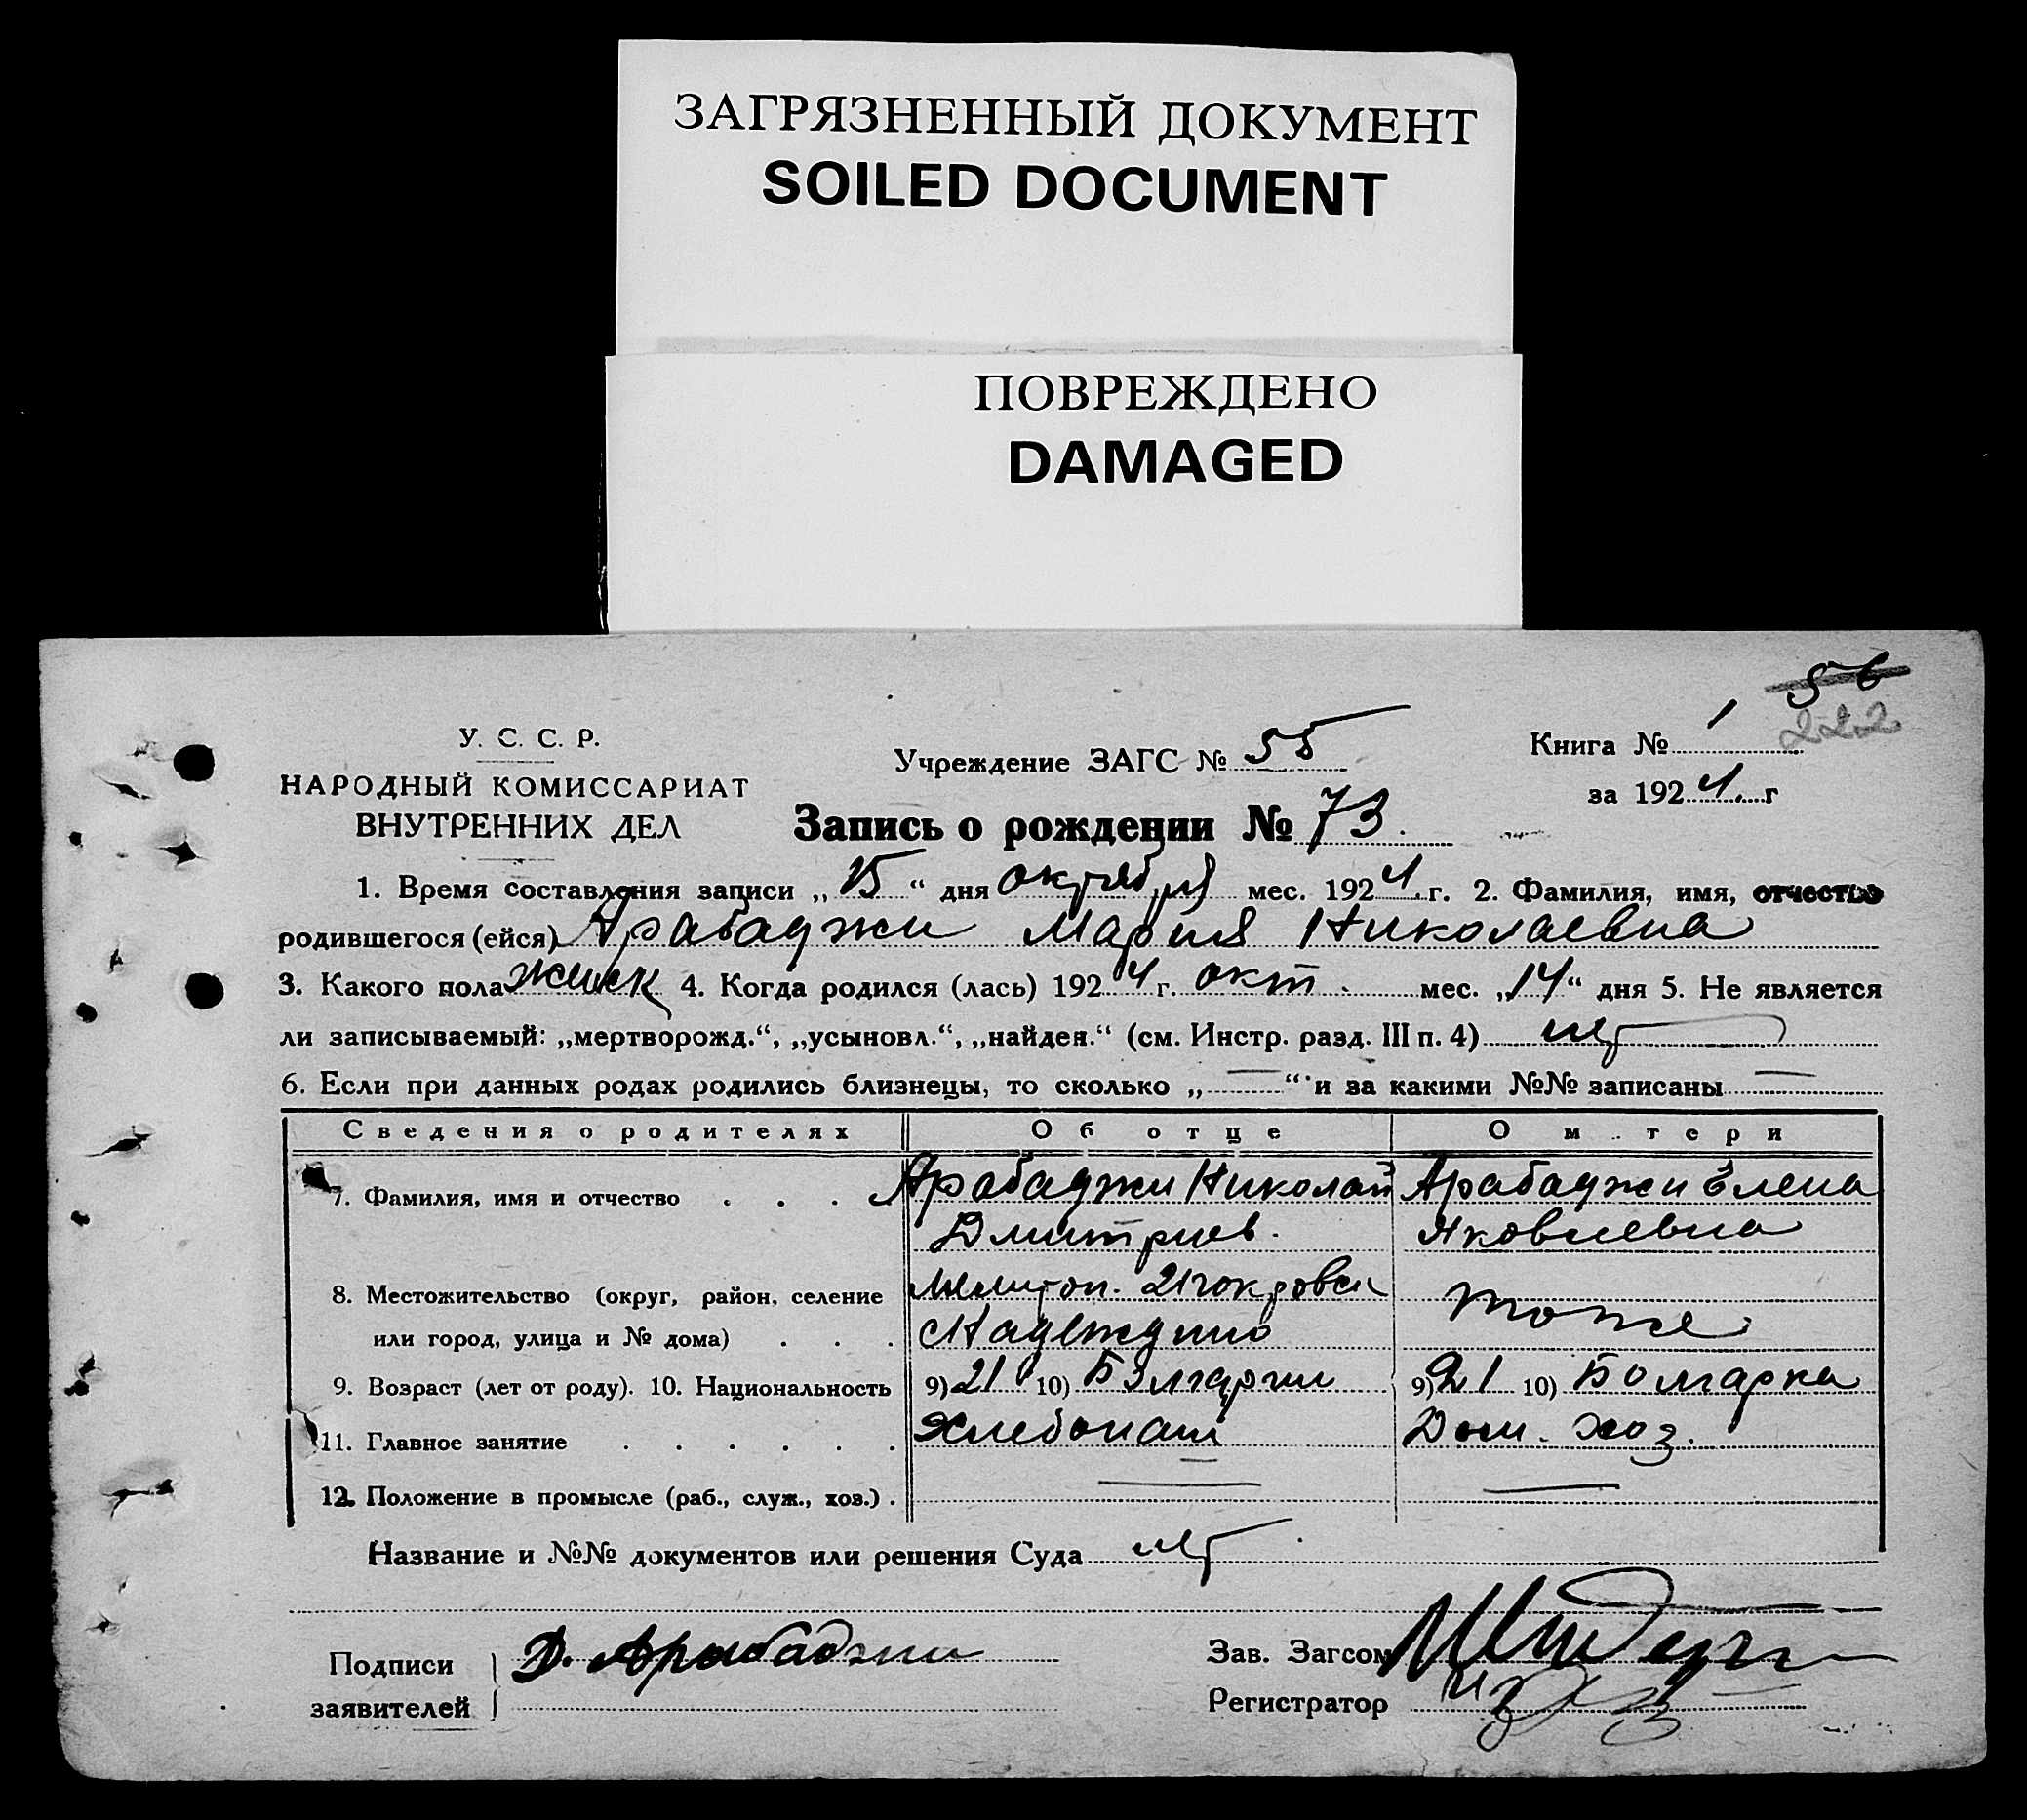 ЗАГРЯЗНЕННЫЙ ДОКУМЕНТ
SOILED DOCUMENT
ПОВРЕЖДЕНО
DAMAGED
56
222
У. С. С. Р.
НАРОДНЫЙ КОМИССАРИАТ
ВНУТРЕННИХ ДЕЛ
Учреждение ЗАГС № 55
Книга № 1
за 1924 г
Запись о рождении № 73.
1. Время составления записи „15“ дня октября мес. 1924 г. 2. Фамилия, имя, отчество
родившегося (ейся) Арабаджи Мария Николаевна
3. Какого пола женск 4. Когда родился (лась) 1924 г. окт. мес. „14“ дня 5. Не является
ли записываемый: „мертворожд.“, „усыновл.“, „найден.“ (см. Инстр. разд. III п. 4) нет
6. Если при данных родах родились близнецы, то сколько „—“ и за какими №№ записаны —
Сведения о родителях Об отце О м тери
7. Фамилия, имя и отчество . . . Арабаджи Николай Арабаджи Елена
Дмитриев. Яковлевна
8. Местожительство (округ, район, селение Мелитоп. Покровск
или город, улица и № дома) . . . с Надеждино тоже
9. Возраст (лет от роду). 10. Национальность 9) 21 10) Болгарин 9) 21 10) Болгарка
11. Главное занятие . . . . . . Хлебопаш Дом. хоз.
12. Положение в промысле (раб., служ., хов.) . — —
Название и №№ документов или решения Суда нет
Подписи
заявителей
Д. Арабаджи
Зав. Загсом
Регистратор